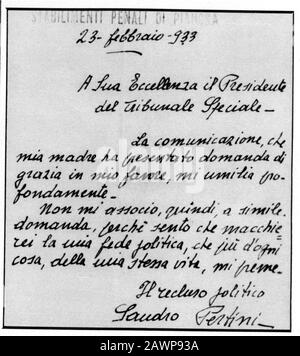 STABILIMENTI PENALI DI PIANOSA
23-febbraio-933
A Sua Eccellenza il Presidente
del Tribunale Speciale-
La comunicazione, che
mia madre ha presentato domanda di
grazia in mio favore, mi umilia pro-
fondamente-
Non mi associo, quindi, a simile
domanda, perché sento che macchie-
rei la mia fede politica, che più d'ogni
cosa, della mia stessa vita, mi preme-
Il recluso politico
Sandro Pertini-
alamy
Image ID: 2AWP93A
www.alamy.com